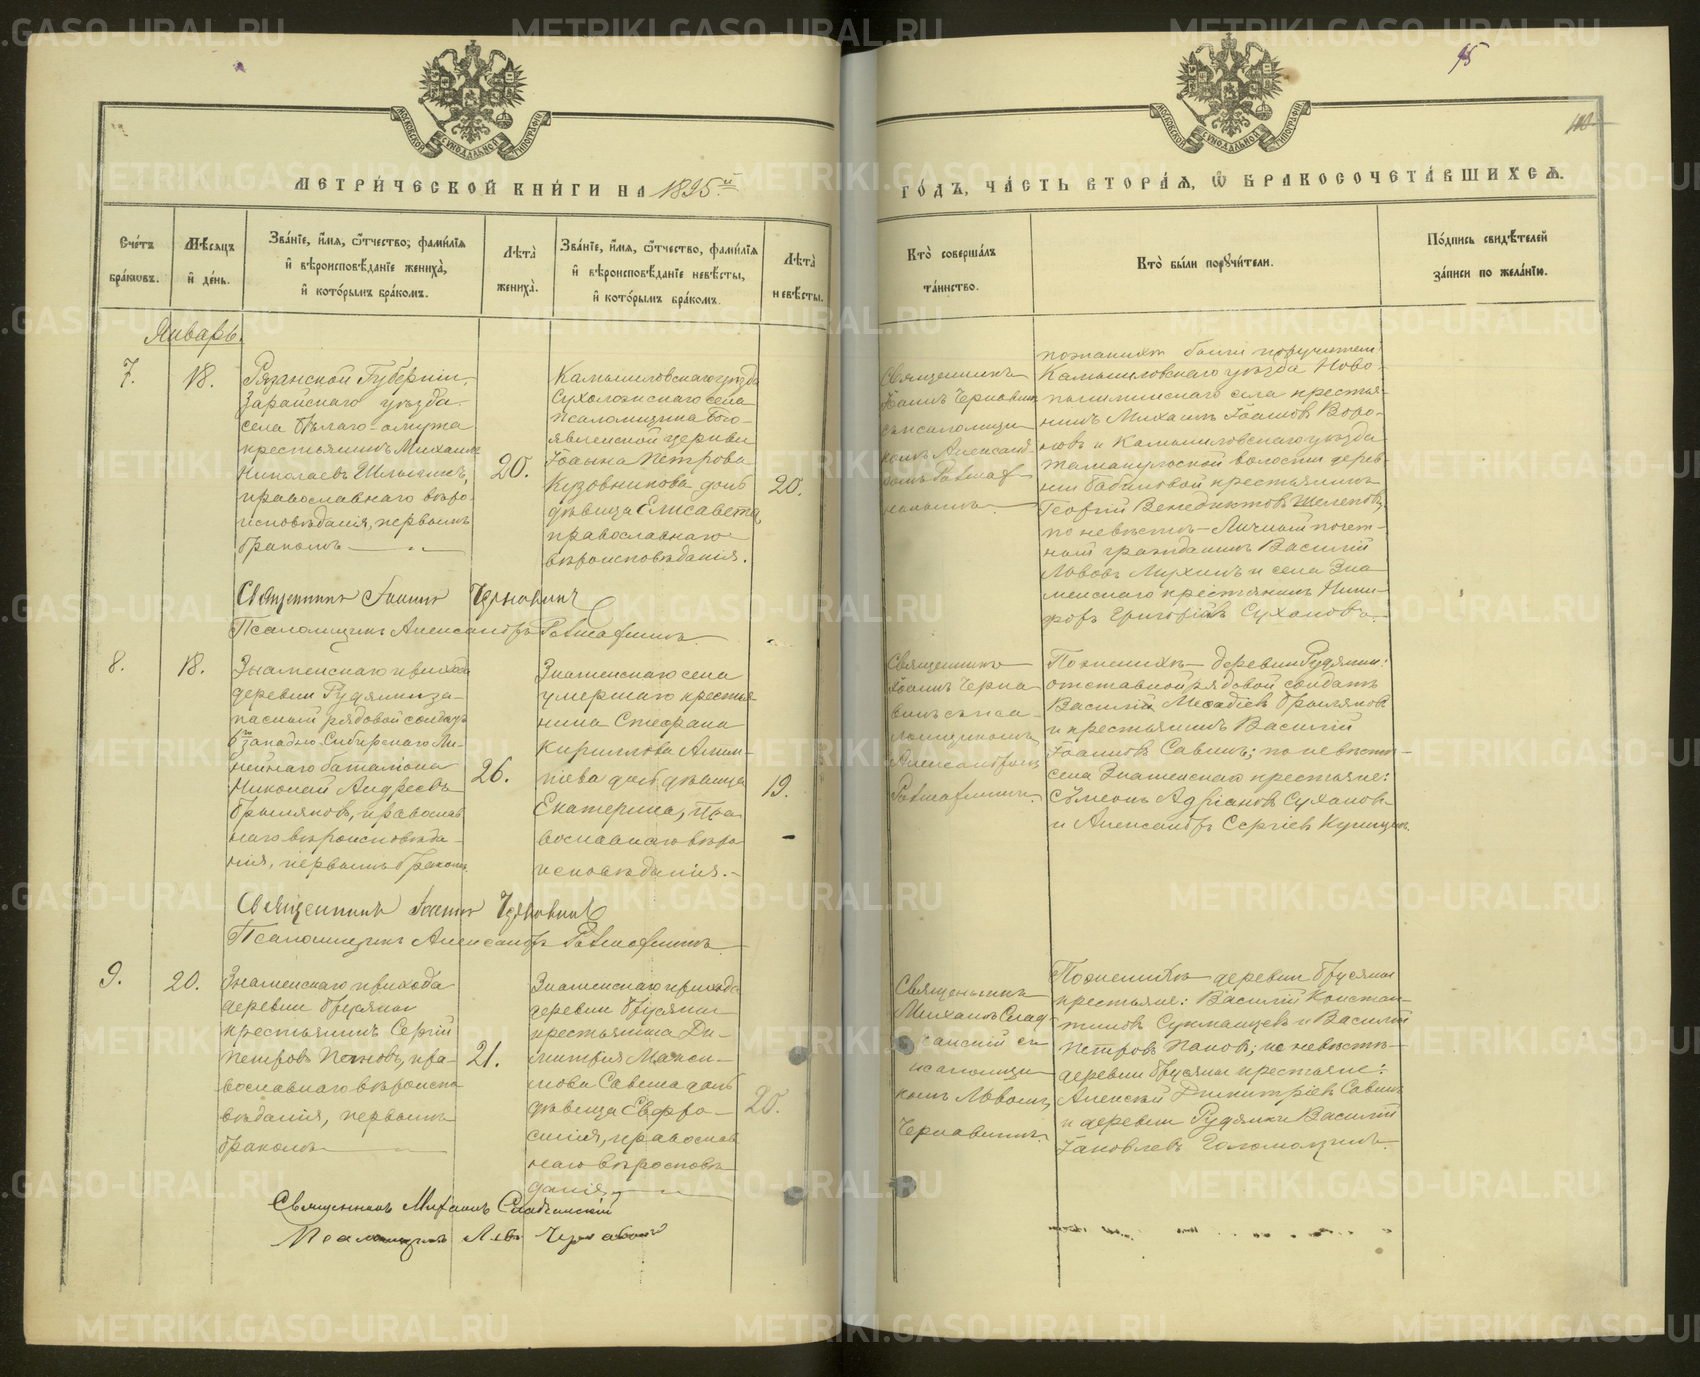 МЕТРИ́ЧЕСКОЙ КНИ́ГИ НА 1895й
ГО́ДЪ, ЧА́СТЬ ВТОРА́Я, Ѡ БРАКОСОЧЕТА́ВШИХСЯ.
95
Сче́тъ бра́кѡвъ.
Мѣ́сяцъ и де́нь.
Зва́нїе, и́мя, ѻ́тчество, фами́лїя и вѣроисповѣ́данїе жениха̀, и кото́рымъ бра́комъ.
Лѣта̀ жениха̀.
Зва́нїе, и́мя, ѻ́тчество, фами́лїя и вѣроисповѣ́данїе невѣ́сты, и кото́рымъ бра́комъ.
Лѣта̀ невѣ́сты.
Кто̀ соверша́лъ та́инство.
Кто̀ бы́ли порꙋчи́тели.
По́дпись свидѣ́телей за́писи по жела́нїю.
Январь.
7.
18.
Рязанской Губерніи,
Зарайскаго уѣзда
села Бѣлаго-омута
крестьянинъ Михаилъ
Николаевъ
православнаго вѣро
исповѣданія, первымъ
бракомъ
20.
Камышловскаго уѣзда
Сухоложскаго села
псаломщика Бого-
явленской церкви
Іоанна Петрова
Кузовникова дочь
дѣвица Елисавета,
православнаго
вѣроисповѣданія.
20.
Священникъ
Іоаннъ Чернавинъ
съ псаломщи-
комъ Александ-
ромъ
по женихѣ были поручители
Камышловскаго уѣзда Ново-
пышминскаго села крестья-
нинъ Михаилъ Іоанновъ Воро-
новъ и Камышловскаго уѣзда
волости дерев-
ни крестьянинъ
Георгій Венедиктовъ Шелеповъ,
по невѣстѣ – Личный почет-
ный гражданинъ Василій
Львовъ и села Зна
менскаго крестьянинъ Ники-
форъ Григорьевъ Сухановъ.
Священникъ Іоаннъ Чернавинъ
Псаломщикъ Александръ
8.
18.
Знаменскаго прихода
деревни Рудянки за-
пасный рядовой солдатъ
6го Западно-Сибирскаго Ли-
нейнаго баталіона
Николай Андреевъ
Брыляковъ, православ
наго вѣроисповѣда-
нія, первымъ бракомъ.
26.
Знаменскаго села
умершаго крестья-
нина Стефана
Кириллова
дочь дѣвица
Екатерина, Пра
вославнаго вѣро
исповѣданія.
19.
Священникъ
Іоаннъ Черна
винъ съ пса-
ломщикомъ
Александромъ
По женихѣ – деревни Рудянки:
отставной рядовой солдатъ
Василій Меѳодіевъ Брыляковъ
и крестьянинъ Василій
Іоанновъ Савинъ; по невѣстѣ –
села Знаменскаго крестьяне:
Сѵмеонъ Адріановъ Сухановъ
и Александръ Сергіевъ
Священникъ Іоаннъ Чернавинъ
Псаломщикъ Александръ
9.
20.
Знаменскаго прихода
деревни Брусяны
крестьянинъ Сергій
Петровъ Пановъ, пра-
вославнаго вѣроиспо
вѣданія, первымъ
бракомъ
21.
Знаменскаго прихода
деревни Брусяны
крестьянина Ди-
митрія Макси-
мова Савина дочь
дѣвица Евфро-
синія, православ
наго вѣроисповѣ
данія,
20.
Священникъ
Михаилъ
съ
псаломщи-
комъ Львомъ
Чернавинымъ.
По женихѣ деревни Брусяны
крестьяне: Василій Констан-
тиновъ и Василій
Петровъ Пановъ; по невѣстѣ –
деревни Брусяны крестьяне:
Алексѣй Димитріевъ Савинъ
и деревни Рудянки Василій
Іаковлевъ
Священникъ Михаилъ
Псаломщикъ Левъ
METRIKI.GASO-URAL.RU